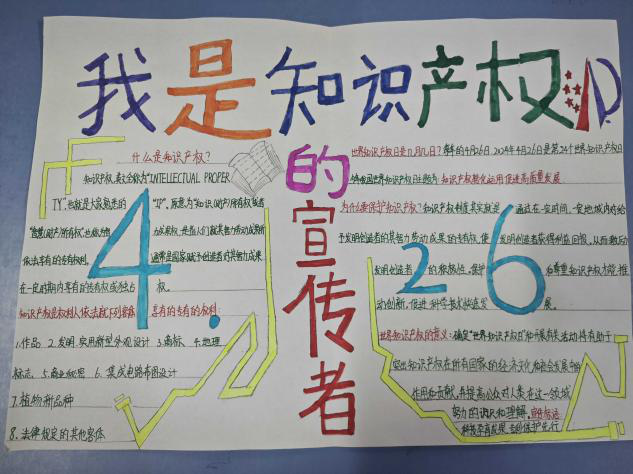 我是知识产权
的宣传者
4.26
什么是知识产权?
知识产权,英文全称为"INTELLECTUAL PROPER
TY",也就是大家熟悉的"IP",原意为"知识(财产)所有权"或者
"智慧(财产)所有权",也称为智力成果权,是指人们就其智力劳动成果所
依法享有的专有权利,通常是国家赋予创造者对其智力成果
在一定时期内享有的专有权或独占权。
知识产权是权利人依法就下列客体享有的专有的权利:
1.作品 2.发明、实用新型外观设计 3.商标、4.地理
标志、5.商业秘密 6.集成电路布图设计
7.植物新品种
8.法律规定的其他客体
世界知识产权日是几月几日?每年的4月26日,2024年4月26日是第24个世界知识产权日
我国世界知识产权日主题为:知识产权转化运用促进高质量发展
为什么要保护知识产权?知识产权制度其实就是通过在一定时间、一定地域内对给
予发明创造者的其智力劳动成果的专有权,使发明创造者获得利益回报,从而激励
发明创造者的积极性,保护和尊重知识产权才能推
动创新,促进科学技术快速发展。
世界知识产权日的意义:确定"世界知识产权日"和开展有关活动将有助于
突出知识产权在所有国家的经济文化和社会发展中的
作用和贡献,并提高公众对人类在这一领域
努力的认识和理解。